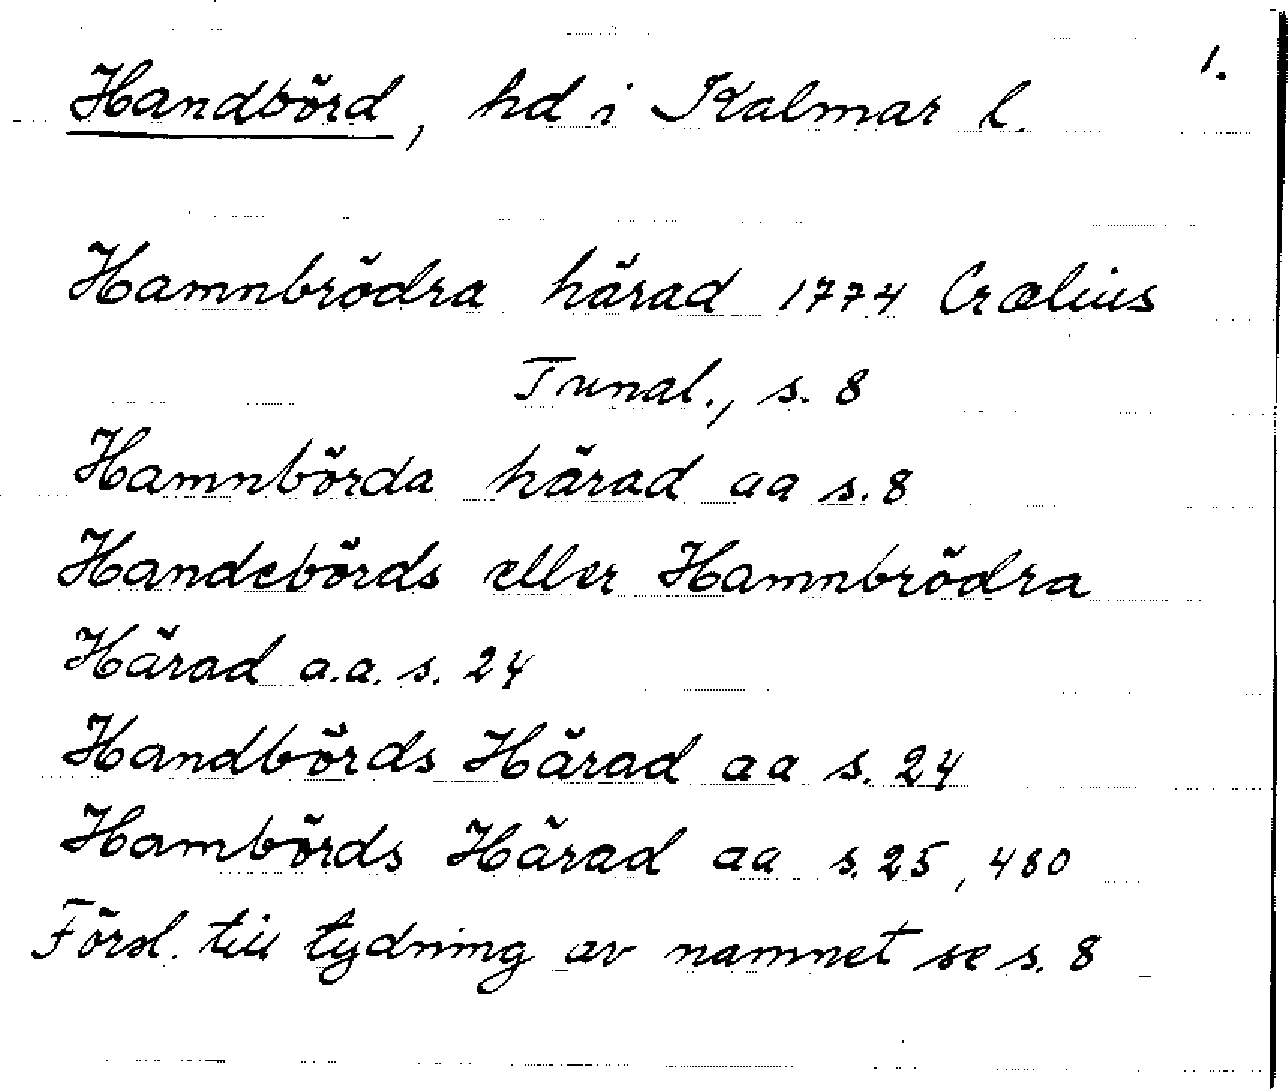 1.
Handbörd, hd i Kalmar l.
Hamnbrödra härad 1774 Crælius
Tunal., s. 8
Hamnbörda härad aa s. 8
Handebörds eller Hamnbrödra
Härad a.a. s. 24
Handbörds Härad aa s. 24
Hambörds Härad aa s. 25, 480
Försl. till tydning av namnet se s. 8